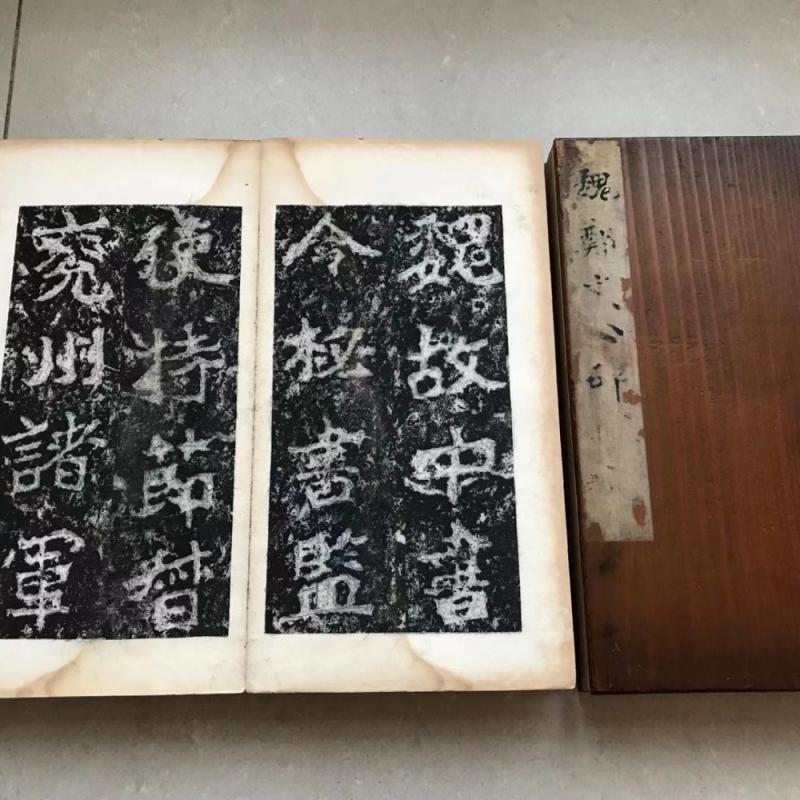 魏鄭文公
魏故中書
令秘書監
使持節督
兗州諸軍